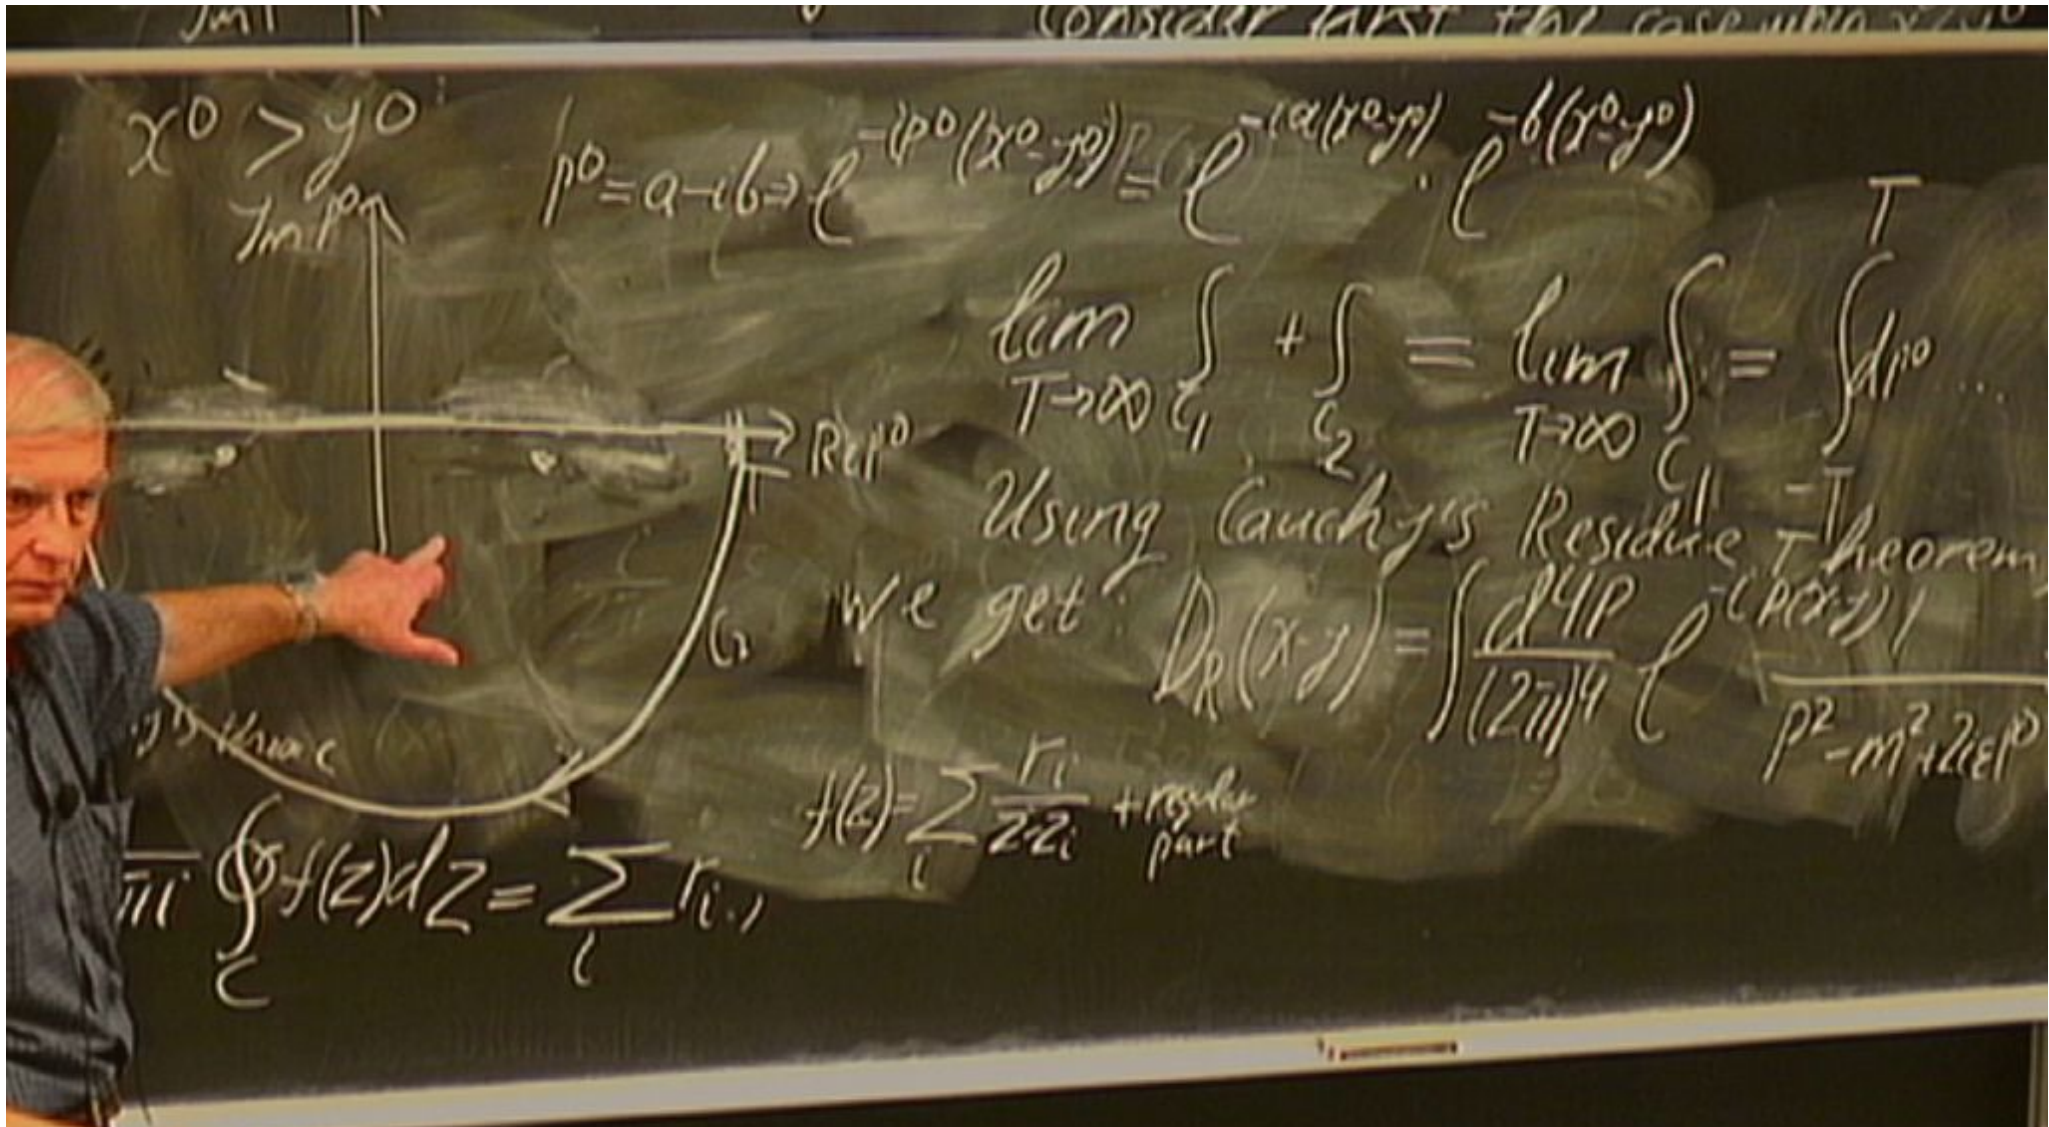 Im
Consider first the case when x⁰>y⁰
x⁰ > y⁰
p⁰=a-ib⇒ e^{-ip⁰(x⁰-y⁰)} = e^{-ia(x⁰-y⁰)} · e^{-b(x⁰-y⁰)}
Im p⁰
lim_{T→∞} ∫_{C₁} + ∫_{C₂} = lim_{T→∞} ∫_{C₁} = ∫_{-T}^{T} dp⁰ ...
Re p⁰
T
Using Cauchy's Residue Theorem,
we get: D_R(x-y) = ∫ d⁴p/(2π)⁴ e^{-ip(x-y)} / p²-m²+2iεp⁰
C₂
f(z)= Σ_i r_i/(z-z_i) + regular part
πi ∮_C f(z)dz = Σ_i r_i.,